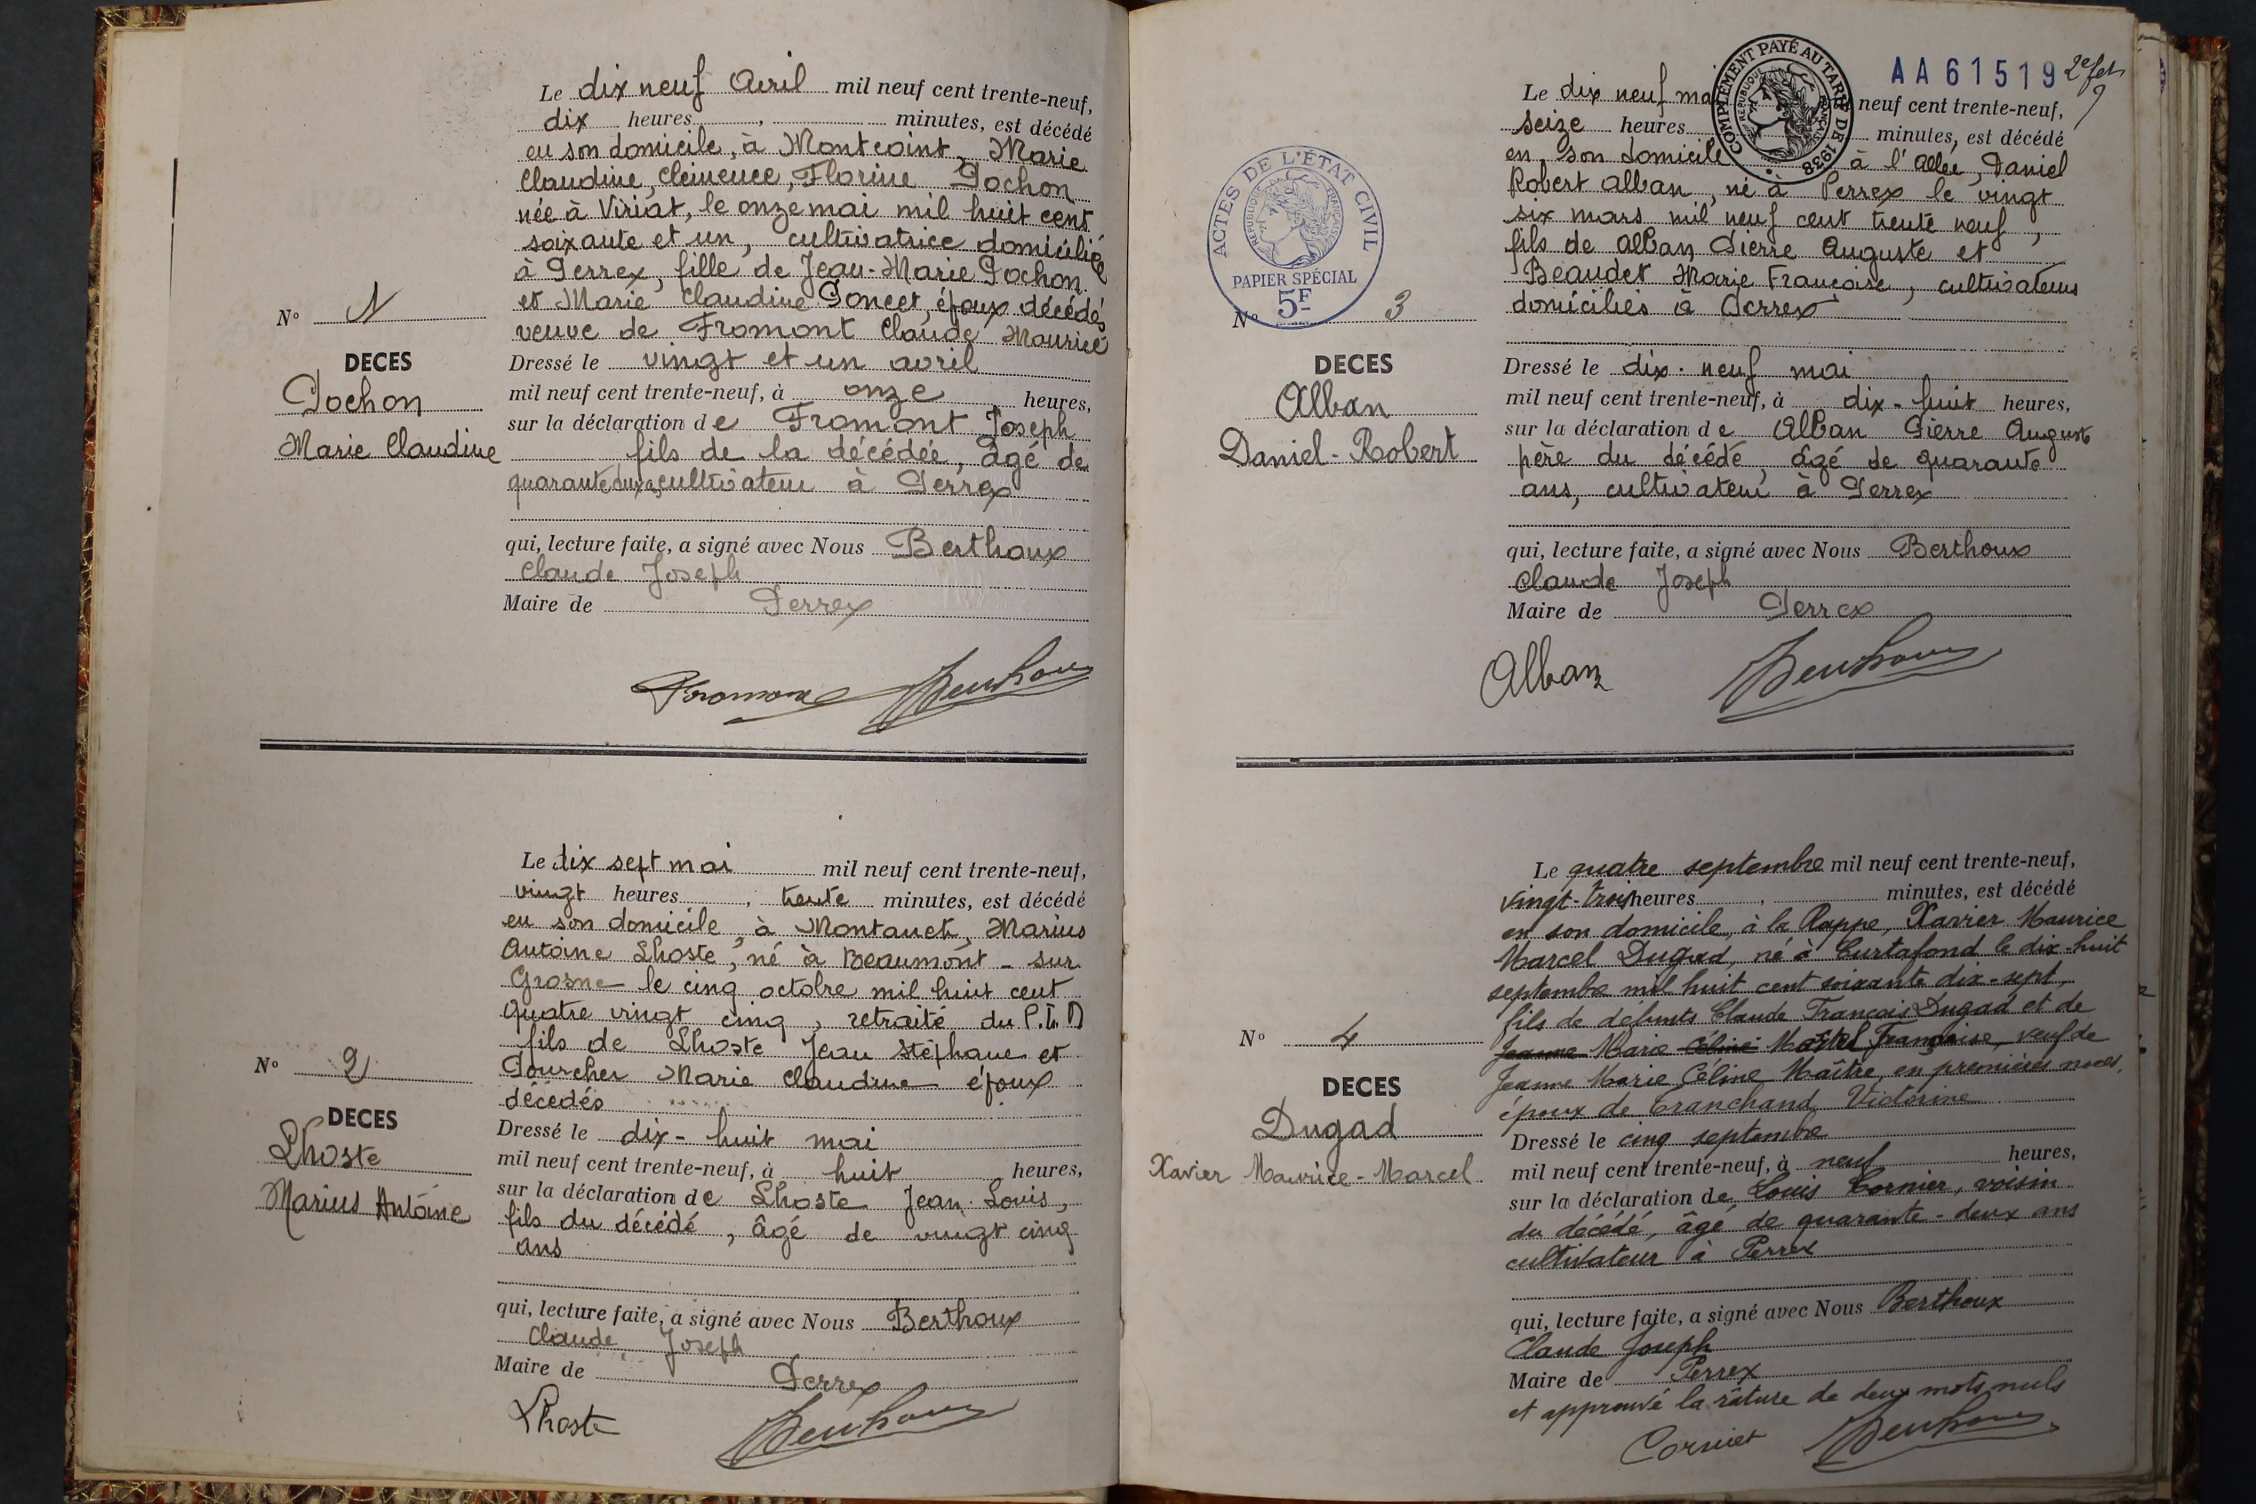 Le dix neuf Avril mil neuf cent trente-neuf,
dix heures, minutes, est décédé
en son domicile, à Montcoint, Marie
Claudine, Clémence, Florine Pochon
née à Viriat, le onze mai mil huit cent
soixante et un, cultivatrice domiciliée
à Perrex, fille de Jean-Marie Pochon
et Marie Claudine Poncet, époux décédés
veuve de Fromont Claude Maurice
N° 1
DECES
Pochon
Marie Claudine
Dressé le vingt et un avril
mil neuf cent trente-neuf, à onze heures,
sur la déclaration de Fromont Joseph
fils de la décédée, âgé de
quarante deux ans cultivateur à Perrex
qui, lecture faite, a signé avec Nous Berthoux
Claude Joseph
Maire de Perrex
Fromont Berthoux
Le dix sept mai mil neuf cent trente-neuf,
vingt heures, trente minutes, est décédé
en son domicile, à Montanet, Marius
Antoine Lhoste, né à Beaumont-sur-
Grosne le cinq octobre mil huit cent
quatre vingt cinq, retraité du P.L.M
fils de Lhoste Jean Stéphane et
Pourcher Marie Claudine époux
décédés
N° 2
DECES
Lhoste
Marius Antoine
Dressé le dix-huit mai
mil neuf cent trente-neuf, à huit heures,
sur la déclaration de Lhoste Jean Louis,
fils du décédé, âgé de vingt cinq
ans
qui, lecture faite, a signé avec Nous Berthoux
Claude Joseph
Maire de Perrex
Lhoste Berthoux
AA61519 2e fet
9
COMPLÉMENT PAYÉ AU TARIF DE 1938
RÉPUBLIQUE FRANÇAISE
Le dix neuf mai neuf cent trente-neuf,
seize heures minutes, est décédé
en son domicile à l'Allée, Daniel
Robert Alban, né à Perrex le vingt
six mars mil neuf cent trente neuf,
fils de Alban Pierre Auguste et
Beaudet Marie Françoise, cultivateurs
domiciliés à Perrex
ACTES DE L'ÉTAT CIVIL
RÉPUBLIQUE FRANÇAISE
PAPIER SPÉCIAL
5F
N° 3
DECES
Alban
Daniel-Robert
Dressé le dix-neuf mai
mil neuf cent trente-neuf, à dix-huit heures,
sur la déclaration de Alban Pierre Auguste
père du décédé, âgé de quarante
ans, cultivateur à Perrex
qui, lecture faite, a signé avec Nous Berthoux
Claude Joseph
Maire de Perrex
Alban Berthoux
Le quatre septembre mil neuf cent trente-neuf,
vingt-trois heures, minutes, est décédé
en son domicile, à la Rappe, Xavier Maurice
Marcel Dugad, né à Curtafond le dix-huit
septembre mil huit cent soixante dix-sept,
fils de défunts Claude François Dugad et de
Jeanne Marie Céline Françoise, veuf de
Jeanne Marie Céline Maître en premières noces,
époux de Tranchand Victorine
N° 4
DECES
Dugad
Xavier Maurice-Marcel
Dressé le cinq septembre
mil neuf cent trente-neuf, à neuf heures,
sur la déclaration de Louis Cornier, voisin
du décédé, âgé de quarante-deux ans
cultivateur à Perrex
qui, lecture faite, a signé avec Nous Berthoux
Claude Joseph
Maire de Perrex
et approuvé la râture de deux mots nuls
Cornier Berthoux